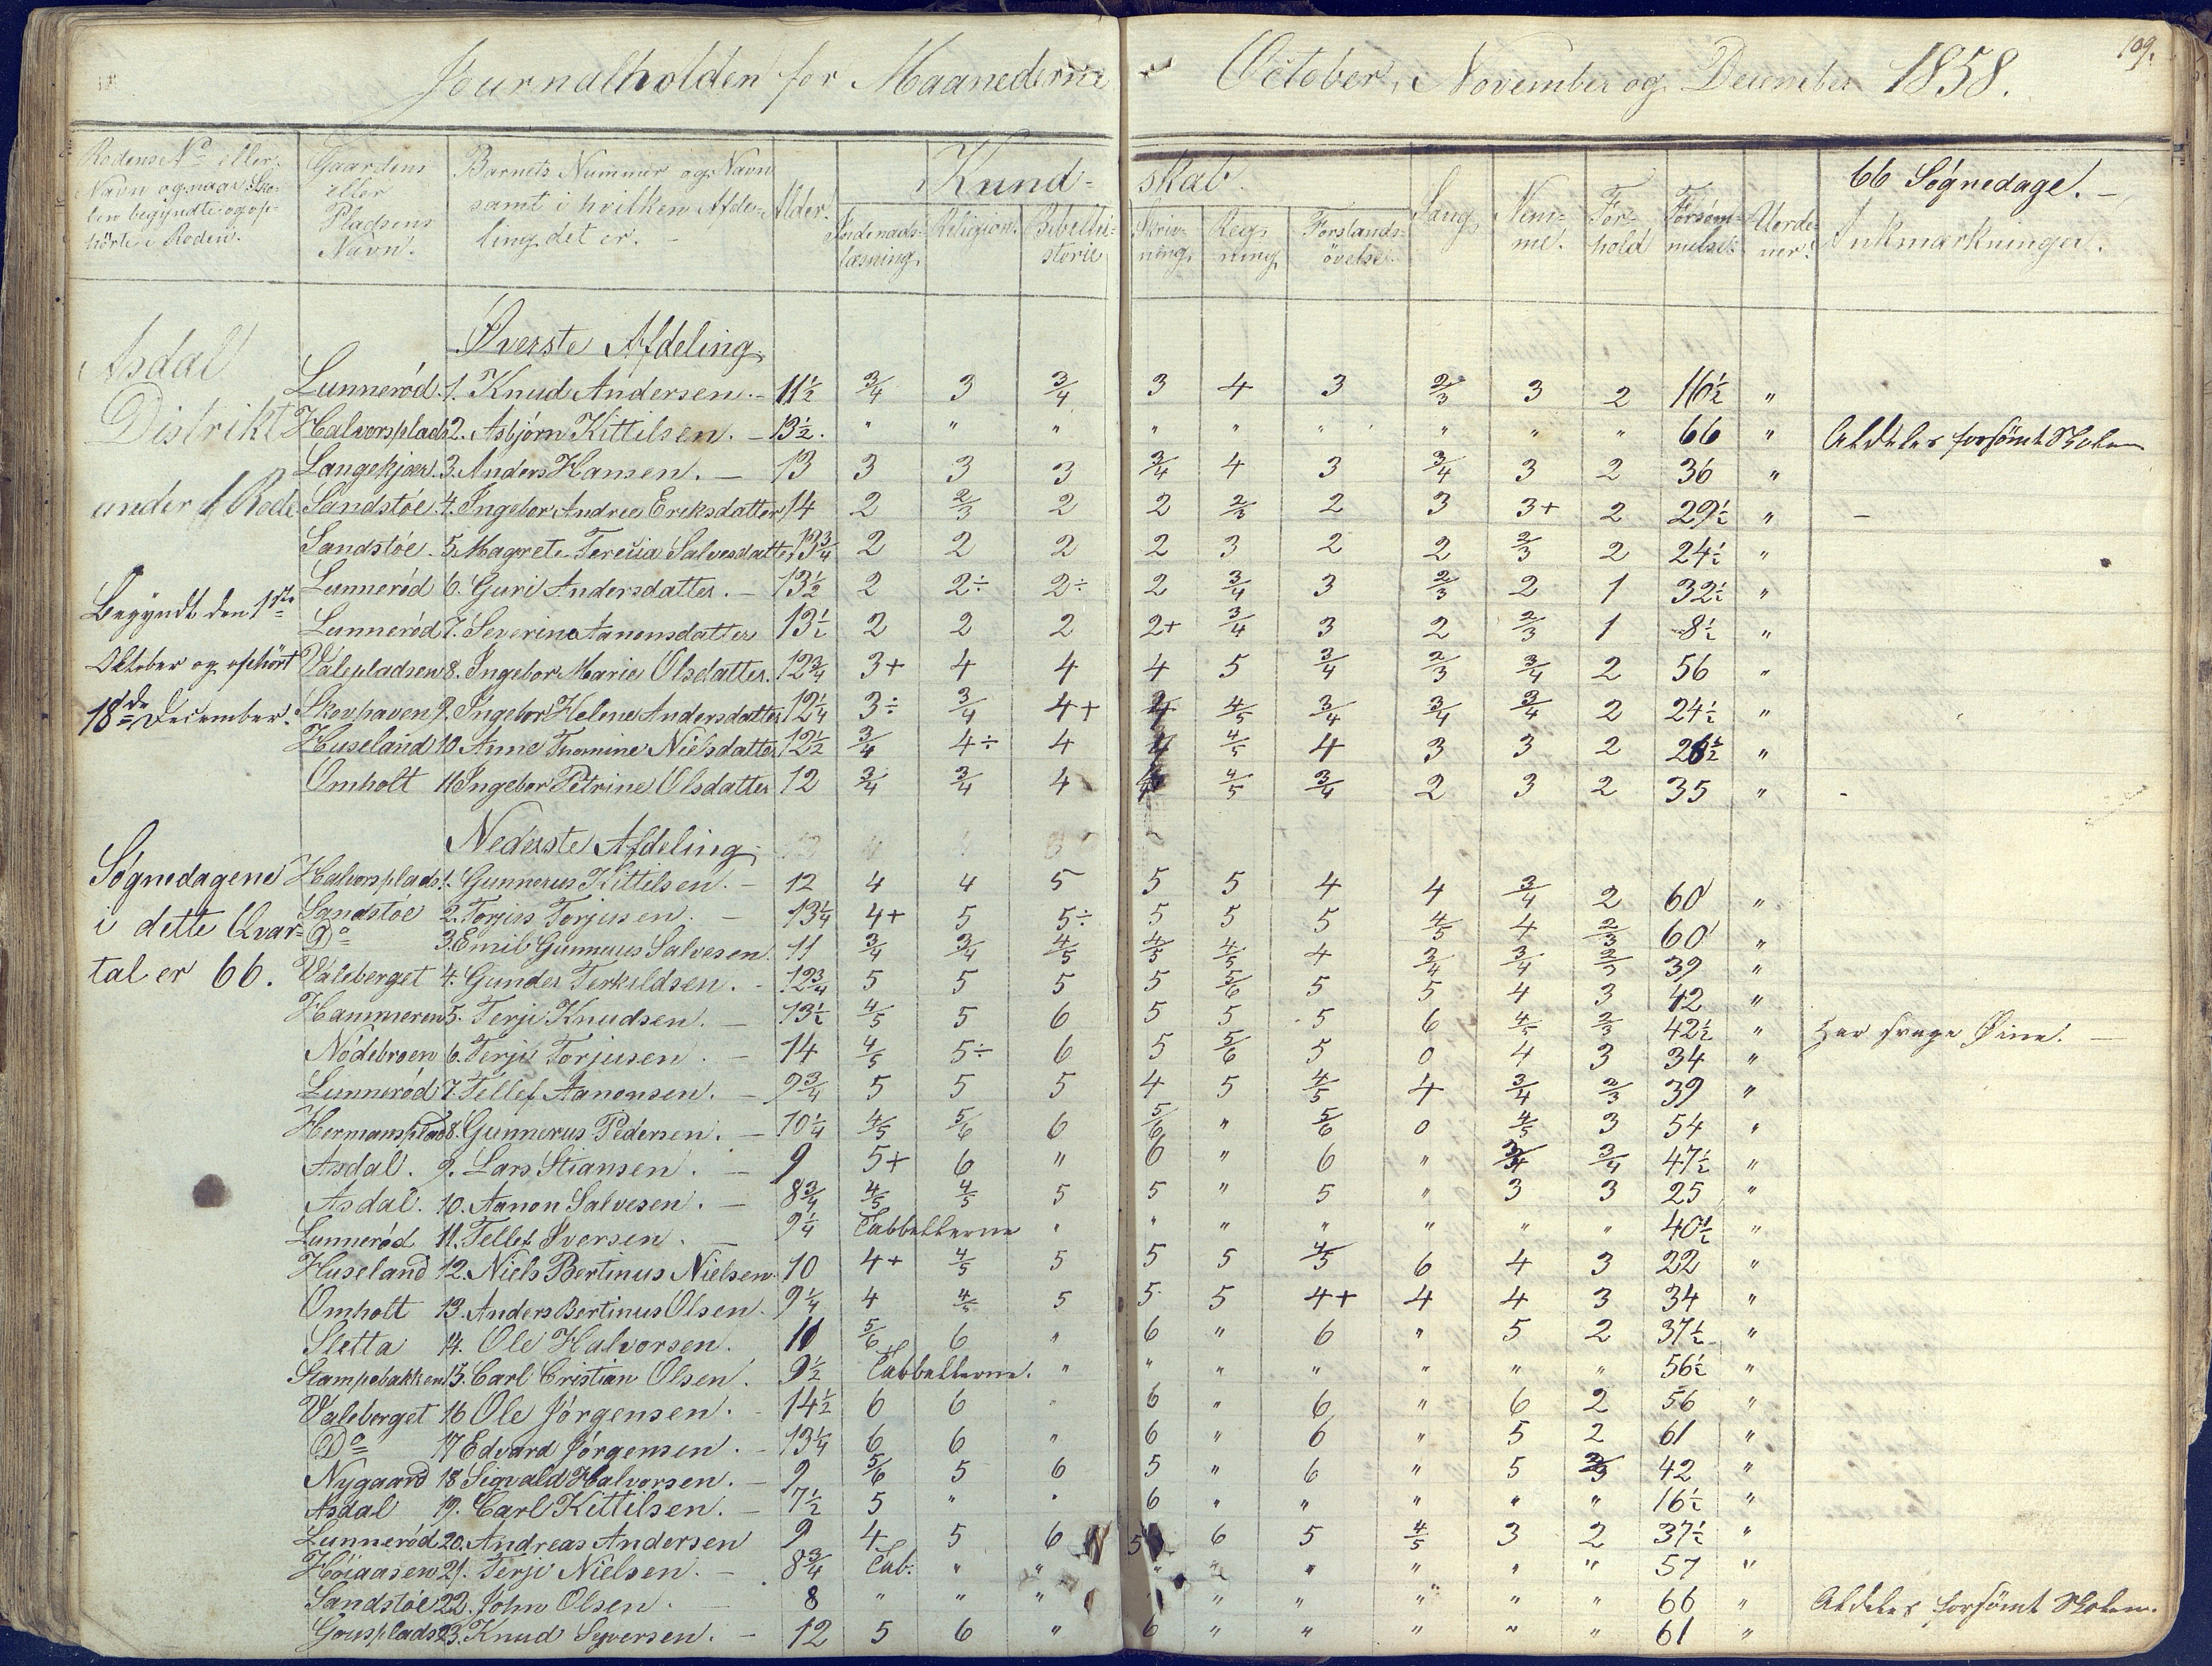 Journalholden for Maanederne October, November og December 1858.
109.
Rodens No eller Navn og naar Skolen begyndte og ophörte i Roden.
Gaardens eller Pladsens Navn.
Barnets Nummer og Navn samt i hvilken Afdeling det er. –
Alder.
Kundskab.
Indenadslæsning.
Religion.
Bibelhistorie
Skrivning.
Regning
Forstandsövelse.
Sang.
Nemme.
Forhold
Forsömmelser.
Uordener.
66 Søgnedage. –
Ankmærkninger.
Asdal
Distrikt
under 1 Rode
Begyndt den 1ste
Oktober og ophört
18de December.
Søgnedagene
i dette Qvar-
tal er 66.
Øverste Afdeling,
Lunneröd 1. Knud Andersen. – 11½ 3/4 3 3/4 3 4 3 2/3 3 2 16½ "
Halvorsplads 2. Asbjörn Kittilsen. – 13½. " " " " " " " " " 66 " Aldeles forsömt Skolen
Langekjær. 3. Anders Hansen. – 13 3 3 3 3/4 4 3 3/4 3 2 36 "
Sandstöe 4. Ingebor Andrea Eriksdatter 14 2 2/3 2 2 2/3 2 3 3+ 2 29½ " –
Sandstöe 5. Magrete Teresia Salvesdatter 13¾ 2 2 2 2 3 2 2 2/3 2 24½ "
Lunneröd 6. Guri Andersdatter. – 13½ 2 2÷ 2÷ 2 3/4 3 2/3 2 1 32½ "
Lunneröd 7. Severine Aanonsdatter 13½ 2 2 2 2+ 3/4 3 2 2/3 1 8½ "
Valepladsen 8. Ingebor Marie Olsdatter. 12¾ 3+ 4 4 4 5 3/4 2/3 3/4 2 56 "
Skovhaven 9. Ingebor Helene Andersdatter 12¼ 3÷ 3/4 4+ 4 4/5 3/4 3/4 3/4 2 24½ "
Huseland 10. Anne Thomine Nielsdatter 12½ 3/4 4÷ 4 4 4/5 4 3 3 2 26½ "
Omholt 11. Ingebor Petrine Olsdatter 12 3/4 3/4 4 4 4/5 3/4 2 3 2 35 "
Nederste Afdeling,
Halvorsplads 1. Gunnerus Kittilsen. – 12 4 4 5 5 5 4 4 3/4 2 60 "
Sandstöe 2. Torjus Torjusen. – 13¼ 4+ 5 5÷ 5 5 5 4/5 4 2/3 60 "
Do 3. Emil Gunnerus Salvesen 11 3/4 3/4 4/5 4/5 4/5 4 3/4 3/4 2/3 39 "
Valeberget 4. Gunder Terkildsen. – 12¾ 5 5 5 5 5/6 5 5 4 3 42 "
Hammeren 5. Terji Knudsen. – 13½ 4/5 5 6 5 5 5 6 4/5 2/3 42½ " Har svage Øine. –
Nödebroen 6. Terje Torjusen. – 14 4/5 5÷ 6 5 5/6 5 0 4 3 34 "
Lunneröd 7. Tellef Aanonsen. – 9¾ 5 5 5 4 5 4/5 4 3/4 2/3 39 "
Hermansplad 8. Gunnerus Pedersen. – 10¼ 4/5 5/6 6 5/6 " 5/6 0 4/5 3 54 "
Asdal. 9. Lars Stiansen. – 9 5+ 6 " 6 " 6 " 3/4 3/4 47½ "
Asdal. 10. Aanon Salvesen. – 8¾ 4/5 4/5 5 5 " 5 " 3 3 25 "
Lunneröd 11. Tellef Iversen. – 9¼ Tabbellerne " " " " " " " 40½ "
Huseland 12. Niels Bertinus Nielsen 10 4+ 4/5 5 5 5 4/5 6 4 3 22 "
Omholt 13. Anders Bertinus Olsen. 9¼ 4 4/5 5 5 5 4+ 4 4 3 34 "
Sletta 14. Ole Halvorsen. 11 5/6 6 " 6 " 6 " 5 2 37½ "
Stampebakken 15. Carl Cristian Olsen. 9½ Tabbellerne. " " " " " " " 56½ "
Valeberget 16 Ole Jörgensen. – 14½ 6 6 " 6 " 6 " 6 2 56 "
Do 17 Edvard Jörgensen. – 13¼ 6 6 " 6 " 6 " 5 2 61 "
Nygaard 18 Sigvald Halvorsen. – 9 5/6 5 6 5 " 6 " 5 2/3 42 "
Asdal 19. Carl Kittilsen. – 7½ 5 " " 6 " " " " " 16½ "
Lunneröd 20. Andreas Andersen 9 4 5 6 5 6 5 4/5 3 2 37½ "
Höiaasen 21. Terje Nielsen. – 8¾ Tab: " " " " " " " " 57 "
Sandstöe 22. John Olsen. – 8 " " " " " " " " " 66 " Aldeles forsömt Skolen.
23. Knud Syversen. – 12 5 6 " 6 " " " " " 61 "